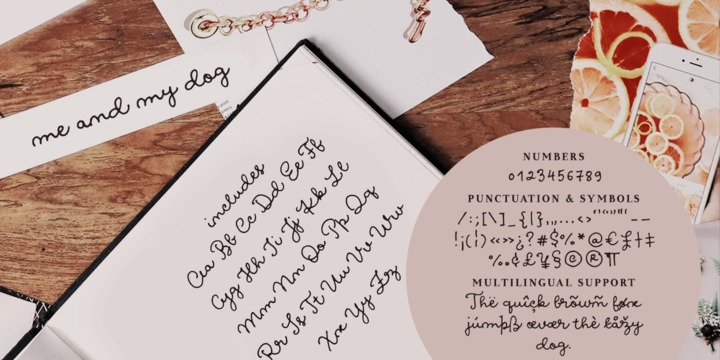 me and my dog
includes
Aa Bb Cc Dd Ee Ff
Gg Hh Ii Jj Kk Ll
Mm Nn Oo Pp Qq
Rr Ss Tt Uu Vv Ww
Xx Yy Zz
NUMBERS
0123456789
PUNCTUATION & SYMBOLS
/:;[\]_{|},„…<>''""'""--
!¡(|)«»>¿?#$%*@€₤†‡
‰¢£¥§©®¶
MULTILINGUAL SUPPORT
Thë quîçk brõwñ føx
júmpß œvær thè låžy
dog.